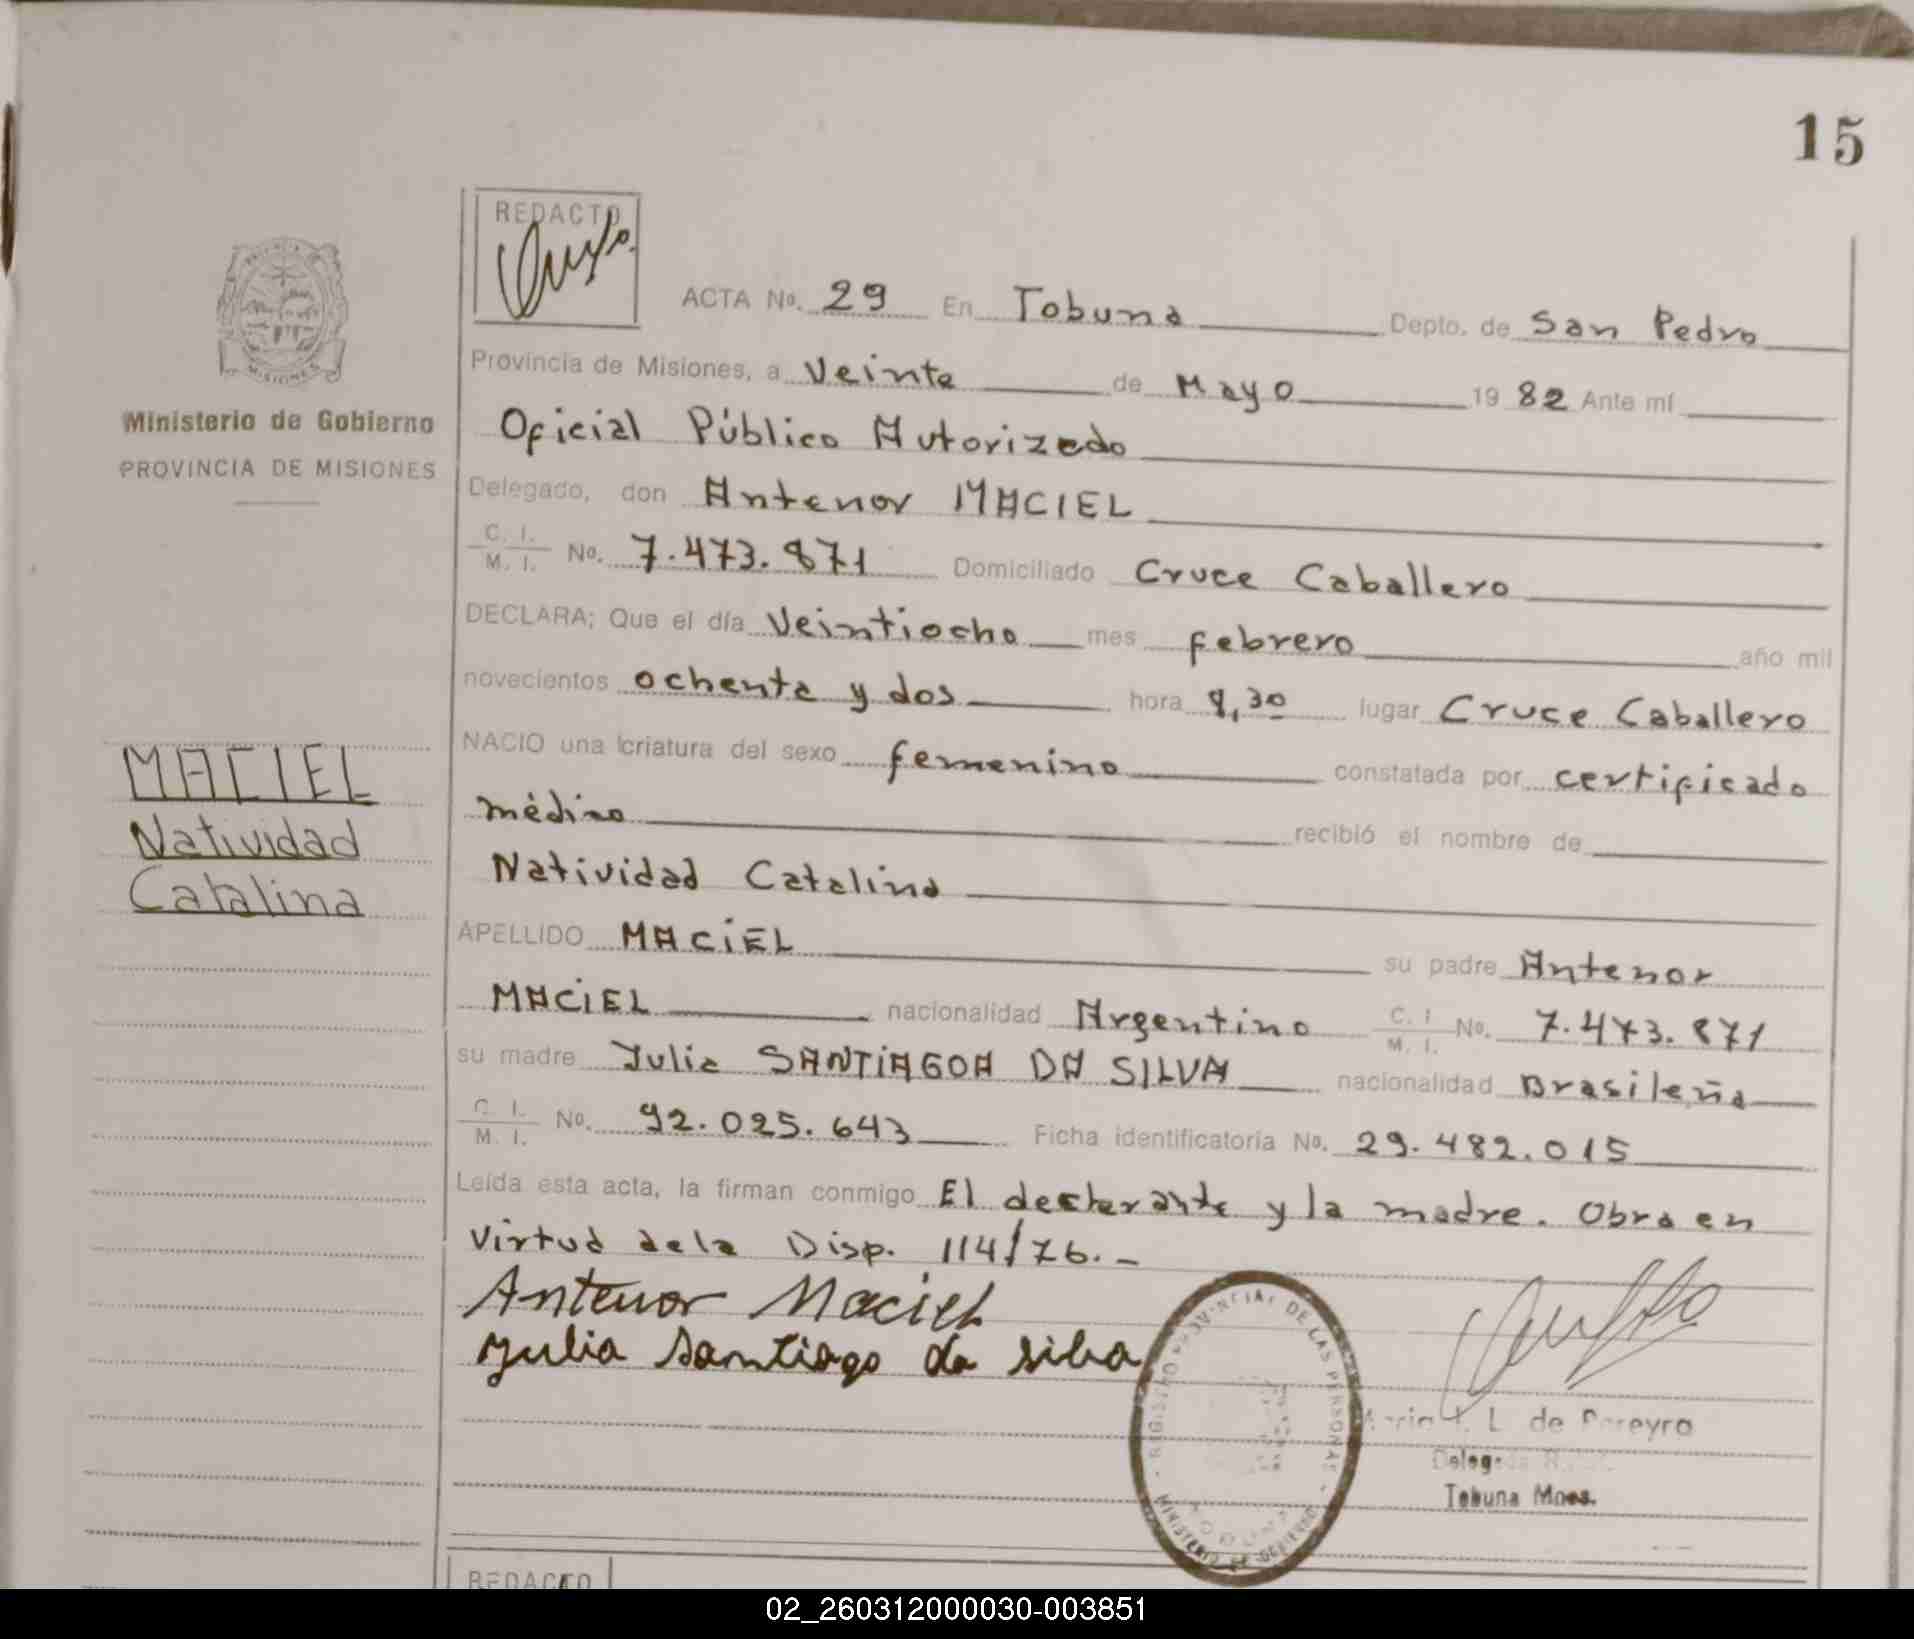 15
REDACTO
ACTA No. 29 En Tobuna Depto. de San Pedro
Provincia de Misiones, a Veinte de Mayo 1982 Ante mí
Oficial Público Autorizado
Delegado, don Antenor MACIEL
C. I. / M. I. No. 7.473.871 Domiciliado Cruce Caballero
DECLARA; Que el día Veintiocho mes febrero año mil
novecientos ochenta y dos hora 9,30 lugar Cruce Caballero
NACIO una criatura del sexo femenino constatada por certificado
médico recibió el nombre de
Natividad Catalina
APELLIDO MACIEL su padre Antenor
MACIEL nacionalidad Argentino C. I. / M. I. No. 7.473.871
su madre Julia SANTIAGOA DA SILVA nacionalidad Brasileña
C. I. / M. I. No. 92.025.643 Ficha identificatoria No. 29.482.015
Leída esta acta, la firman conmigo El declarante y la madre. Obra en
Virtud de la Disp. 114/76.-
Antenor Maciel
Julia Santiago da silva
MISIONES
Ministerio de Gobierno
PROVINCIA DE MISIONES
MACIEL
Natividad
Catalina
REGISTRO PROVINCIAL DE LAS PERSONAS
MINISTERIO DE GOBIERNO
L. de Pereyra
Tobuna Mnes.
REDACTO
02_260312000030-003851